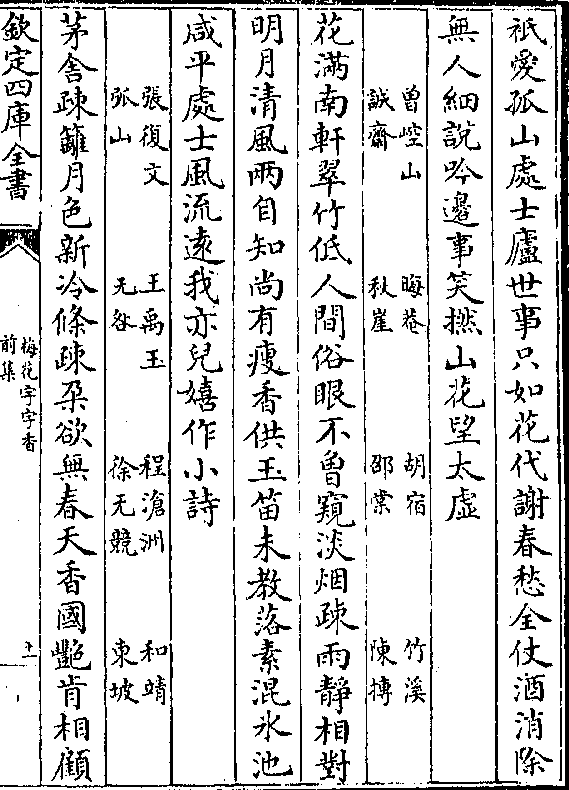 祇愛孤山處士廬世事只如花代謝春愁全仗酒消除
無人細說吟邊事笑撚山花望太虛
曾崆山 晦菴 胡宿 竹溪
誠齋 秋崖 邵棠 陳摶
花滿南軒翠竹低人間俗眼不曾窺淡烟疎雨靜相對
明月清風兩自知尚有瘦香供玉笛未教落素混氷池
咸平處士風流遠我亦兒嬉作小詩
張復文 王禹玉 程滄洲 和靖
弧山 无咎 徐无競 東坡
茅舍疎籬月色新冷條疎朶欲無春天香國艷肯相顧
欽定四庫全書
梅花字字香
前集